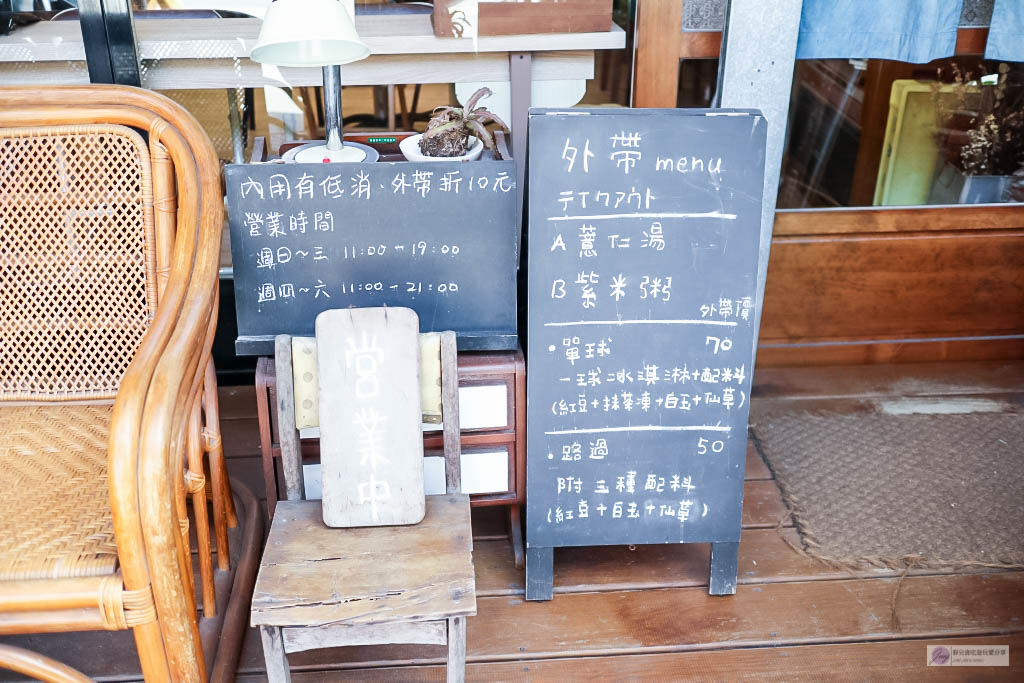 內用有低消、外帶折10元
營業時間
週日~三 11:00-19:00
週四~六 11:00-21:00
營業中
外帶menu
テイクアウト
A薏仁湯
B紫米粥
外帶價
•單球 70
一球冰淇淋+配料
(紅豆+抹茶凍+白玉+仙草)
•路過 50
附三種配料
(紅豆+白玉+仙草)